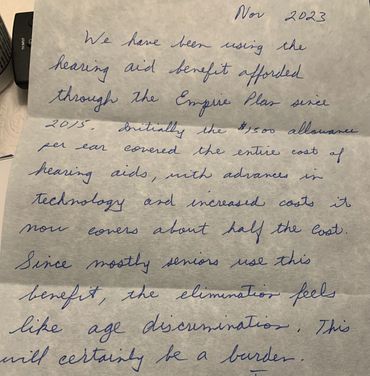 Nov 2023
We have been using the
hearing aid benefit afforded
through the Empire Plan since
2015. Initially the $1500 allowance
per ear covered the entire cost of
hearing aids, with advances in
technology and increased costs it
now covers about half the cost.
Since mostly seniors use this
benefit, the elimination feels
like age discrimination. This
will certainly be a burden.